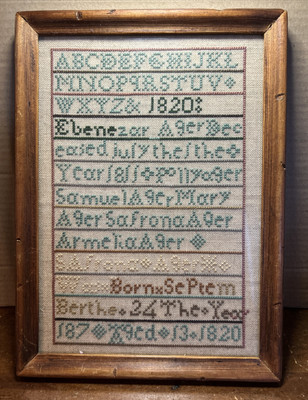 ABCDEFGHIJKL
MNOPQRSTUV
WXYZ& 1820
Ebenezar Ager Dec
eased july the 1 the
Year 1811 Polly Ager
Samuel Ager Mary
Ager Safrona Ager
Armelia Ager
Safrona Ager
Was Born Septem
Berthe 24 The Year
187 Aged 13 1820